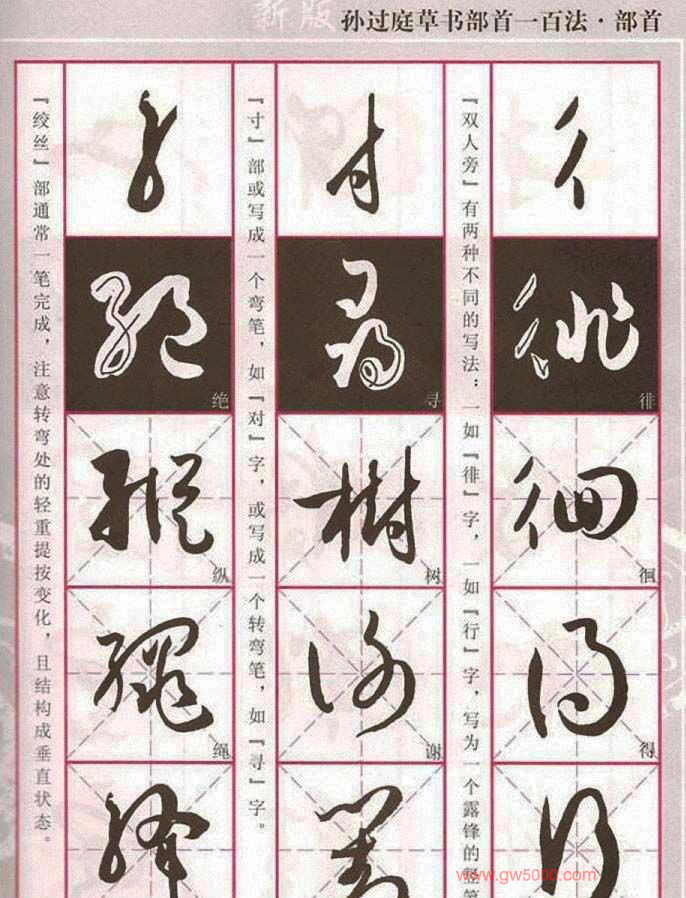 新版 孙过庭草书部首一百法·部首
徘
徊
得
『双人旁』有两种不同的写法：一如『徘』字，一如『行』字，写为一个露锋的竖
寻
树
谢
『寸』部或写成一个弯笔，如『对』字，或写成一个转弯笔，如『寻』字。
绝
纵
绳
『绞丝』部通常一笔完成，注意转弯处的轻重提按变化，且结构成垂直状态。
www.gw5000.com